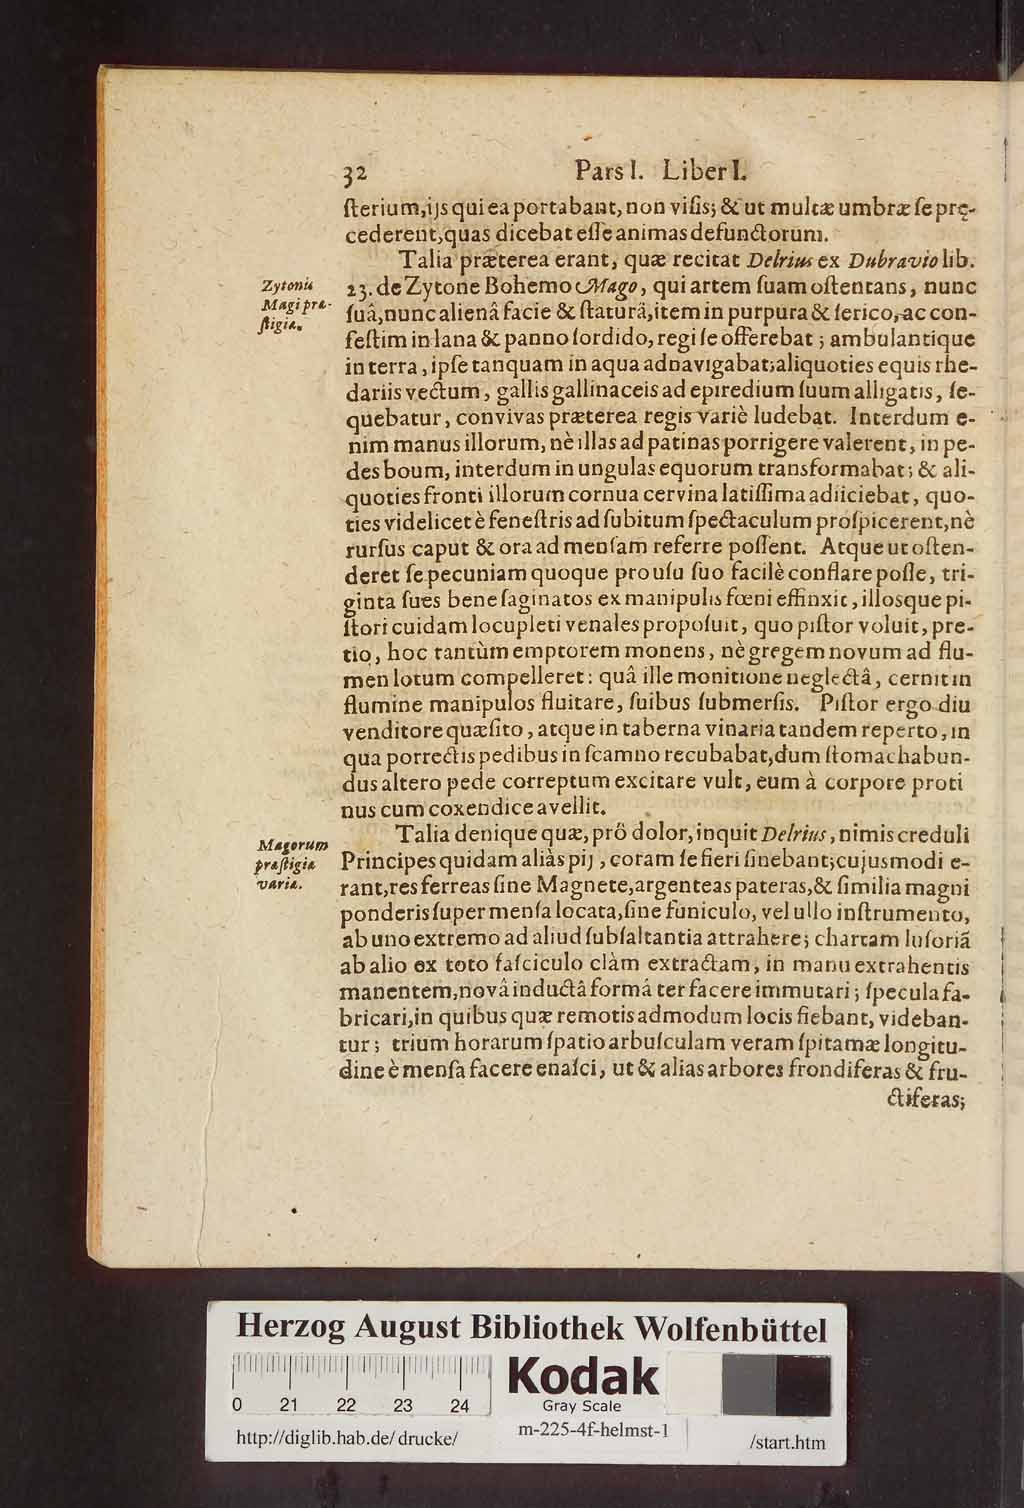 32 Pars I. Liber I.
ſterium,ijs qui ea portabant, non viſis; & ut multæ umbræ ſe prę-
cederent,quas dicebat eſſe animas defunctorum.
Talia præterea erant, quæ recitat Delrius ex Dubravio lib.
Zytonis
Magi præ-
ſtigiæ.
23. de Zytone Bohemo Mago, qui artem ſuam oſtentans, nunc
ſuâ,nunc alienâ facie & ſtaturâ,item in purpura & ſerico, ac con-
feſtim in lana & panno ſordido, regi ſe offerebat; ambulantique
in terra, ipſe tanquam in aqua adnavigabat;aliquoties equis rhe-
dariis vectum, gallis gallinaceis ad epiredium ſuum alligatis, ſe-
quebatur, convivas præterea regis variè ludebat. Interdum e-
nim manus illorum, nè illas ad patinas porrigere valerent, in pe-
des boum, interdum in ungulas equorum transformabat; & ali-
quoties fronti illorum cornua cervina latiſſima adiiciebat, quo-
ties videlicet è feneſtris ad ſubitum ſpectaculum proſpicerent,nè
rurſus caput & ora ad menſam referre poſſent. Atque ut oſten-
deret ſe pecuniam quoque pro uſu ſuo facilè conflare poſſe, tri-
ginta ſues bene ſaginatos ex manipulis fœni effinxit, illosque pi-
ſtori cuidam locupleti venales propoſuit, quo piſtor voluit, pre-
tio, hoc tantùm emptorem monens, nè gregem novum ad flu-
men lotum compelleret: quâ ille monitione neglectâ, cernit in
flumine manipulos fluitare, ſuibus ſubmerſis. Piſtor ergo diu
venditore quæſito, atque in taberna vinaria tandem reperto, in
qua porrectis pedibus in ſcamno recubabat,dum ſtomachabun-
dus altero pede correptum excitare vult, eum à corpore proti
nus cum coxendice avellit.
Magorum
præſtigiæ
variæ.
Talia denique quæ, prô dolor, inquit Delrius, nimis creduli
Principes quidam aliàs pij, coram ſe fieri ſinebant;cujusmodi e-
rant,res ferreas ſine Magnete,argenteas pateras,& ſimilia magni
ponderis ſuper menſa locata,ſine funiculo, vel ullo inſtrumento,
ab uno extremo ad aliud ſubſaltantia attrahere; chartam luſoriã
ab alio ex toto faſciculo clàm extractam, in manu extrahentis
manentem,novâ inductâ formâ ter facere immutari; ſpecula fa-
bricari,in quibus quæ remotis admodum locis fiebant, videban-
tur; trium horarum ſpatio arbuſculam veram ſpitamæ longitu-
dine è menſa facere enaſci, ut & alias arbores frondiferas & fru-
ctiferas;
Herzog August Bibliothek Wolfenbüttel
Kodak
Gray Scale
0 21 22 23 24
http://diglib.hab.de/drucke/ m-225-4f-helmst-1 /start.htm